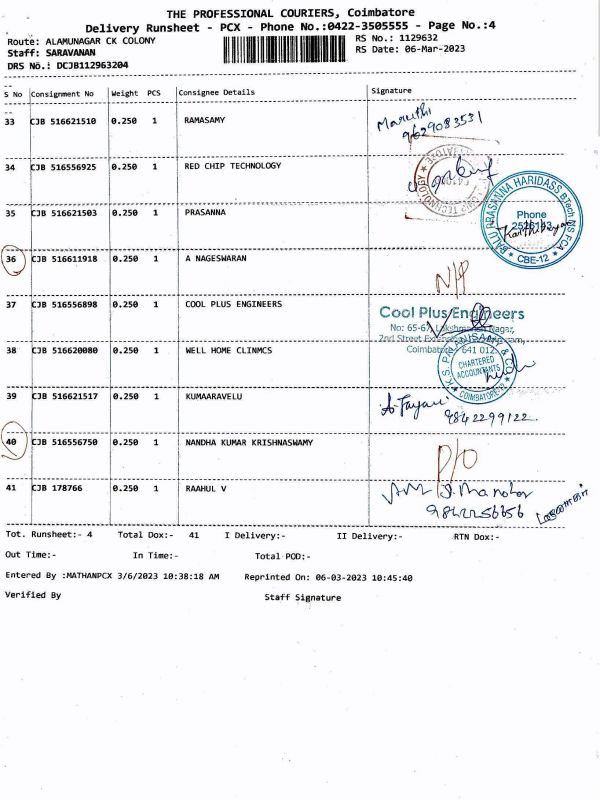 THE PROFESSIONAL COURIERS, Coimbatore
Delivery Runsheet - PCX - Phone No.:0422-3505555 - Page No.:4
Route: ALAMUNAGAR CK COLONY
RS No.: 1129632
Staff: SARAVANAN
RS Date: 06-Mar-2023
DRS No.: DCJB112963204
S No Consignment No Weight PCS Consignee Details Signature
33 CJB 516621510 0.250 1 RAMASAMY
Maruthi
9629083531
34 CJB 516556925 0.250 1 RED CHIP TECHNOLOGY
35 CJB 516621503 0.250 1 PRASANNA
BALU PRASANNA HARIDASS BTech MS FCA
Phone
CBE-12
36 CJB 516611918 0.250 1 A NAGESWARAN
N/P
37 CJB 516556898 0.250 1 COOL PLUS ENGINEERS
Cool Plus Engineers
No: 65-67, Lakshmi Nagar,
2nd Street
Coimbatore 641 012
38 CJB 516620080 0.250 1 WELL HOME CLINMCS
CHARTERED
ACCOUNTANTS
COIMBATORE
39 CJB 516621517 0.250 1 KUMAARAVELU
9842299122
40 CJB 516556750 0.250 1 NANDHA KUMAR KRISHNASWAMY
P/O
41 CJB 178766 0.250 1 RAAHUL V
J. Manohar
9842256656
Tot. Runsheet:- 4 Total Dox:- 41 I Delivery:- II Delivery:- RTN Dox:-
Out Time:- In Time:- Total POD:-
Entered By :MATHANPCX 3/6/2023 10:38:18 AM Reprinted On: 06-03-2023 10:45:40
Verified By Staff Signature